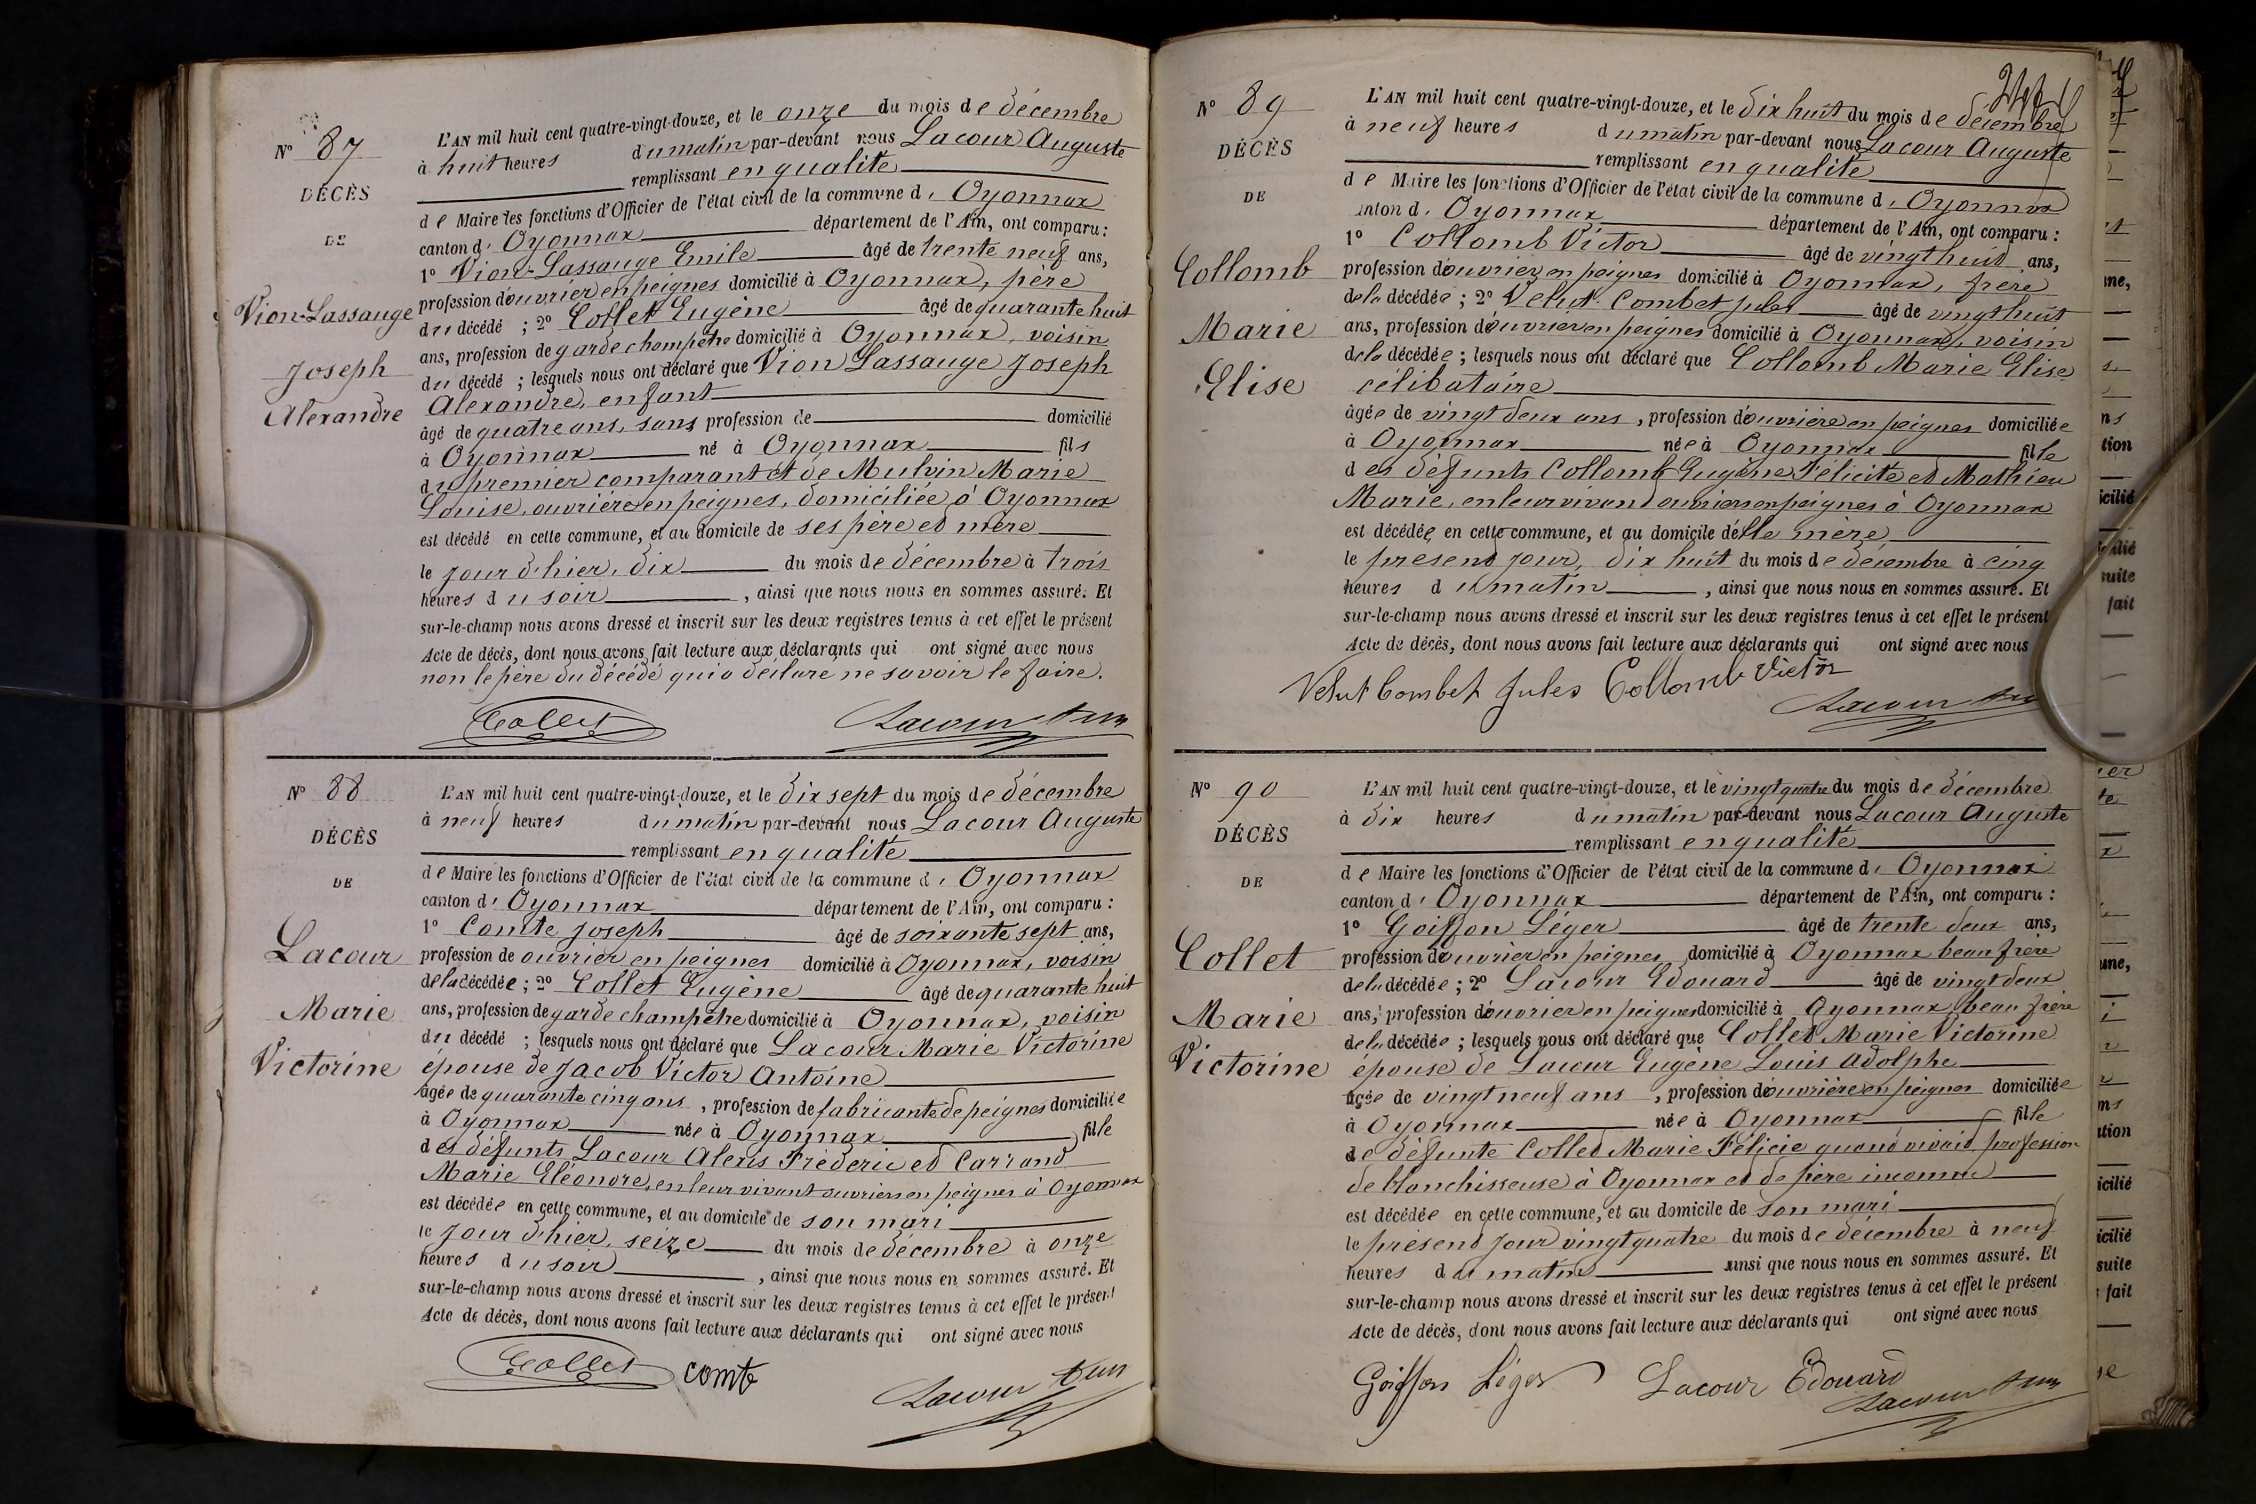 N° 87
DÉCÈS
DE
Vion-Lassauge
Joseph
Alexandre
L'AN mil huit cent quatre-vingt-douze, et le onze du mois de décembre
à huit heures du matin par-devant nous Lacour Auguste
remplissant en qualité
de Maire les fonctions d'Officier de l'état civil de la commune d'Oyonnax
canton d'Oyonnax département de l'Ain, ont comparu :
1° Vion-Lassauge Emile âgé de trente neuf ans,
profession d'ouvrier en peignes domicilié à Oyonnax, père
du décédé ; 2° Collet Eugène âgé de quarante huit
ans, profession de garde champêtre domicilié à Oyonnax, voisin
du décédé ; lesquels nous ont déclaré que Vion Lassauge Joseph
Alexandre, enfant
âgé de quatre ans, sans profession de domicilié
à Oyonnax né à Oyonnax fils
du premier comparant et de Mulvin Marie
Louise, ouvrière en peignes, domiciliée à Oyonnax
est décédé en cette commune, et au domicile de ses père et mère
le jour d'hier, dix du mois de décembre à trois
heures du soir , ainsi que nous nous en sommes assuré. Et
sur-le-champ nous avons dressé et inscrit sur les deux registres tenus à cet effet le présent
Acte de décès, dont nous avons fait lecture aux déclarants qui ont signé avec nous
non le père du décédé qui a déclaré ne savoir le faire.
Collet Lacour
N° 88
DÉCÈS
DE
Lacour
Marie
Victorine
L'AN mil huit cent quatre-vingt-douze, et le dix sept du mois de décembre
à neuf heures du matin par-devant nous Lacour Auguste
remplissant en qualité
de Maire les fonctions d'Officier de l'état civil de la commune d'Oyonnax
canton d'Oyonnax département de l'Ain, ont comparu :
1° Comte Joseph âgé de soixante sept ans,
profession de ouvrier en peignes domicilié à Oyonnax, voisin
de la décédée ; 2° Collet Eugène âgé de quarante huit
ans, profession de garde champêtre domicilié à Oyonnax, voisin
du décédé ; lesquels nous ont déclaré que Lacour Marie Victorine
épouse de Jacob Victor Antoine
âgée de quarante cinq ans , profession de fabricante de peignes domiciliée
à Oyonnax née à Oyonnax fille
des défunts Lacour Alexis Frédéric et Carrand
Marie Eléonore, en leur vivant ouvriers en peignes à Oyonnax
est décédée en cette commune, et au domicile de son mari
le jour d'hier, seize du mois de décembre à onze
heures du soir , ainsi que nous nous en sommes assuré. Et
sur-le-champ nous avons dressé et inscrit sur les deux registres tenus à cet effet le présent
Acte de décès, dont nous avons fait lecture aux déclarants qui ont signé avec nous
Collet comte Lacour
N° 89
DÉCÈS
DE
Collomb
Marie
Elise
L'AN mil huit cent quatre-vingt-douze, et le dix huit du mois de décembre
à neuf heures du matin par-devant nous Lacour Auguste
remplissant en qualité
de Maire les fonctions d'Officier de l'état civil de la commune d'Oyonnax
anton d'Oyonnax département de l'Ain, ont comparu :
1° Collomb Victor âgé de vingt huit ans,
profession d'ouvrier en peignes domicilié à Oyonnax, frère
de la décédée ; 2° Velut-Combet Jules âgé de vingt huit
ans, profession d'ouvrier en peignes domicilié à Oyonnax, voisin
de la décédée ; lesquels nous ont déclaré que Collomb Marie Elise
célibataire
âgée de vingt deux ans , profession d'ouvrière en peignes domiciliée
à Oyonnax née à Oyonnax fille
des défunts Collomb Eugène Félicité et Mathieu
Marie, en leur vivant ouvriers en peignes à Oyonnax
est décédée en cette commune, et au domicile de
le présent jour, dix huit du mois de décembre à cinq
heures du matin , ainsi que nous nous en sommes assuré. Et
sur-le-champ nous avons dressé et inscrit sur les deux registres tenus à cet effet le présent
Acte de décès, dont nous avons fait lecture aux déclarants qui ont signé avec nous
Velut Combet Jules Collomb Victor
Lacour
N° 90
DÉCÈS
DE
Collet
Marie
Victorine
L'AN mil huit cent quatre-vingt-douze, et le vingt quatre du mois de décembre
à dix heures du matin par-devant nous Lacour Auguste
remplissant en qualité
de Maire les fonctions d'Officier de l'état civil de la commune d'Oyonnax
canton d'Oyonnax département de l'Ain, ont comparu :
1° Goiffon Léger âgé de trente deux ans,
profession d'ouvrier en peignes domicilié à Oyonnax beau frère
de la décédée ; 2° Lacour Edouard âgé de vingt deux
ans, profession d'ouvrier en peignes domicilié à Oyonnax, beau frère
de la décédée ; lesquels nous ont déclaré que Collet Marie Victorine
épouse de Lacour Eugène Louis Adolphe
âgée de vingt neuf ans , profession d'ouvrière en peignes domiciliée
à Oyonnax née à Oyonnax fille
de défunte Collet Marie Félicie quand vivait profession
de blanchisseuse à Oyonnax et de père inconnu
est décédée en cette commune, et au domicile de son mari
le présent jour vingt quatre du mois de décembre à neuf
heures du matin ainsi que nous nous en sommes assuré. Et
sur-le-champ nous avons dressé et inscrit sur les deux registres tenus à cet effet le présent
Acte de décès, dont nous avons fait lecture aux déclarants qui ont signé avec nous
Goiffon Léger Lacour Edouard
Lacour